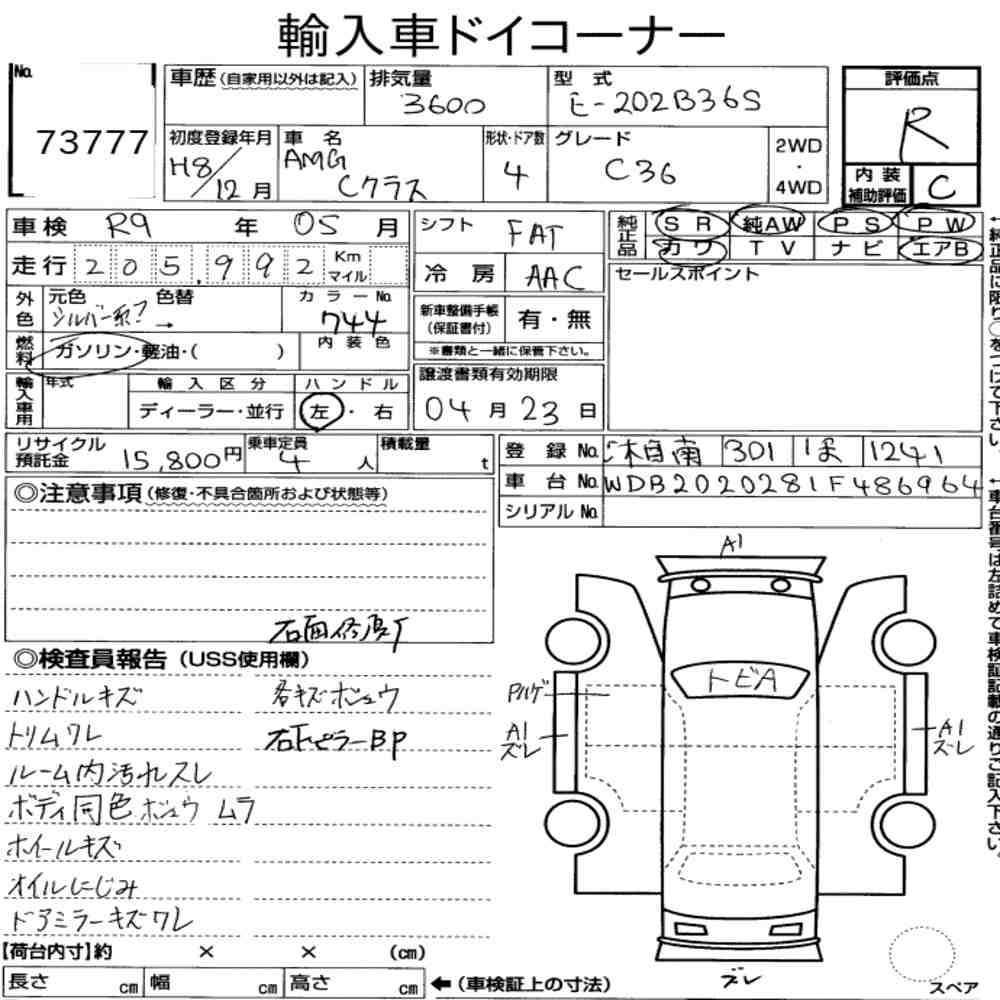 輸入車ドイコーナー
No.
73777
車歴(自家用以外は記入)
排気量
3600
型式
E-202B36S
評価点
R
初度登録年月
H8/12月
車名
AMG
Cクラス
形状・ドア数
4
グレード
C36
2WD
・
4WD
内装
補助評価
C
車検 R9年05月
シフト FAT
純正品
SR 純AW PS PW
カワ TV ナビ エアB
走行 205,992 Km マイル
冷房 AAC
セールスポイント
外色
元色 色替
シルバー系? →
カラーNo.
744
新車整備手帳
(保証書付)
有・無
※書類と一緒に保管下さい。
燃料
ガソリン・軽油・( )
内装色
輸入車用
年式
輸入区分
ディーラー・並行
ハンドル
左・右
譲渡書類有効期限
04月23日
リサイクル
預託金 15,800円
乗車定員
4人
積載量
t
登録No. 301 1241
車台No. WDB2020281F486964
シリアルNo.
◎注意事項(修復・不具合箇所および状態等)
◎検査員報告(USS使用欄)
ハンドルキズ
各キズボコウ
トリムワレ
右Fピラー BP
ルーム内汚れスレ
ボディ同色ボコウ ムラ
ホイールキズ
オイルにじみ
ドアミラーキズワレ
A1
トビA
Pハゲ
A1
ズレ
A1
ズレ
ズレ
スペア
【荷台内寸】約 × × (cm)
長さ cm 幅 cm 高さ cm
←(車検証上の寸法)